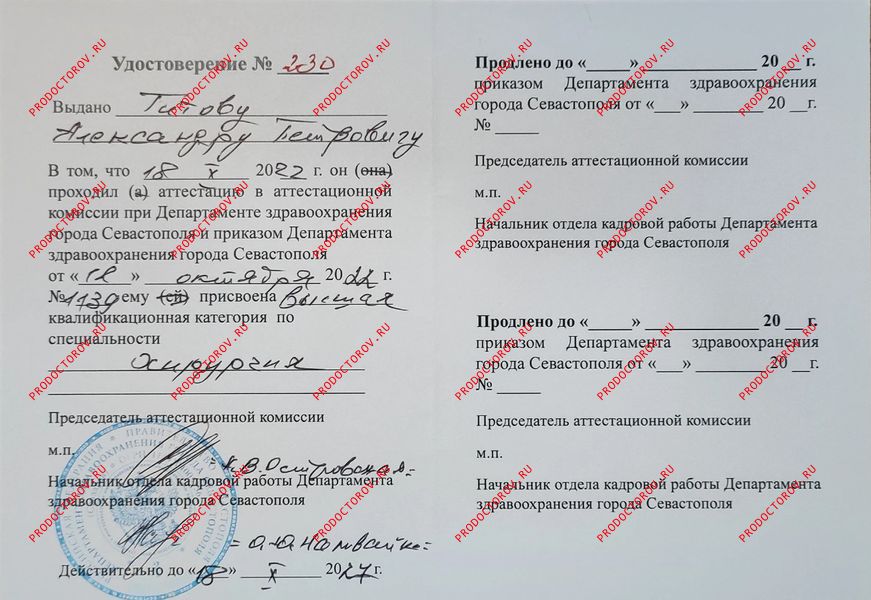 Удостоверение № 230
Выдано Титову
Александру Петровичу
В том, что 18 X 2022 г. он (она)
проходил (а) аттестацию в аттестационной
комиссии при Департаменте здравоохранения
города Севастополя и приказом Департамента
здравоохранения города Севастополя
от «18» октября 2022 г.
№1139 ему (ей) присвоена высшая
квалификационная категория по
специальности
Хирургия
Председатель аттестационной комиссии
м.п.
Начальник отдела кадровой работы Департамента
здравоохранения города Севастополя
Действительно до «18» X 2027 г.
Продлено до «_____» _____________ 20 __ г.
приказом Департамента здравоохранения
города Севастополя от «___» ________ 20 __г.
№ _____
Председатель аттестационной комиссии
м.п.
Начальник отдела кадровой работы Департамента
здравоохранения города Севастополя
Продлено до «_____» _____________ 20 __г.
приказом Департамента здравоохранения
города Севастополя от «___» ________ 20 __г.
№ _____
Председатель аттестационной комиссии
м.п.
Начальник отдела кадровой работы Департамента
здравоохранения города Севастополя
PRODOCTOROV.RU